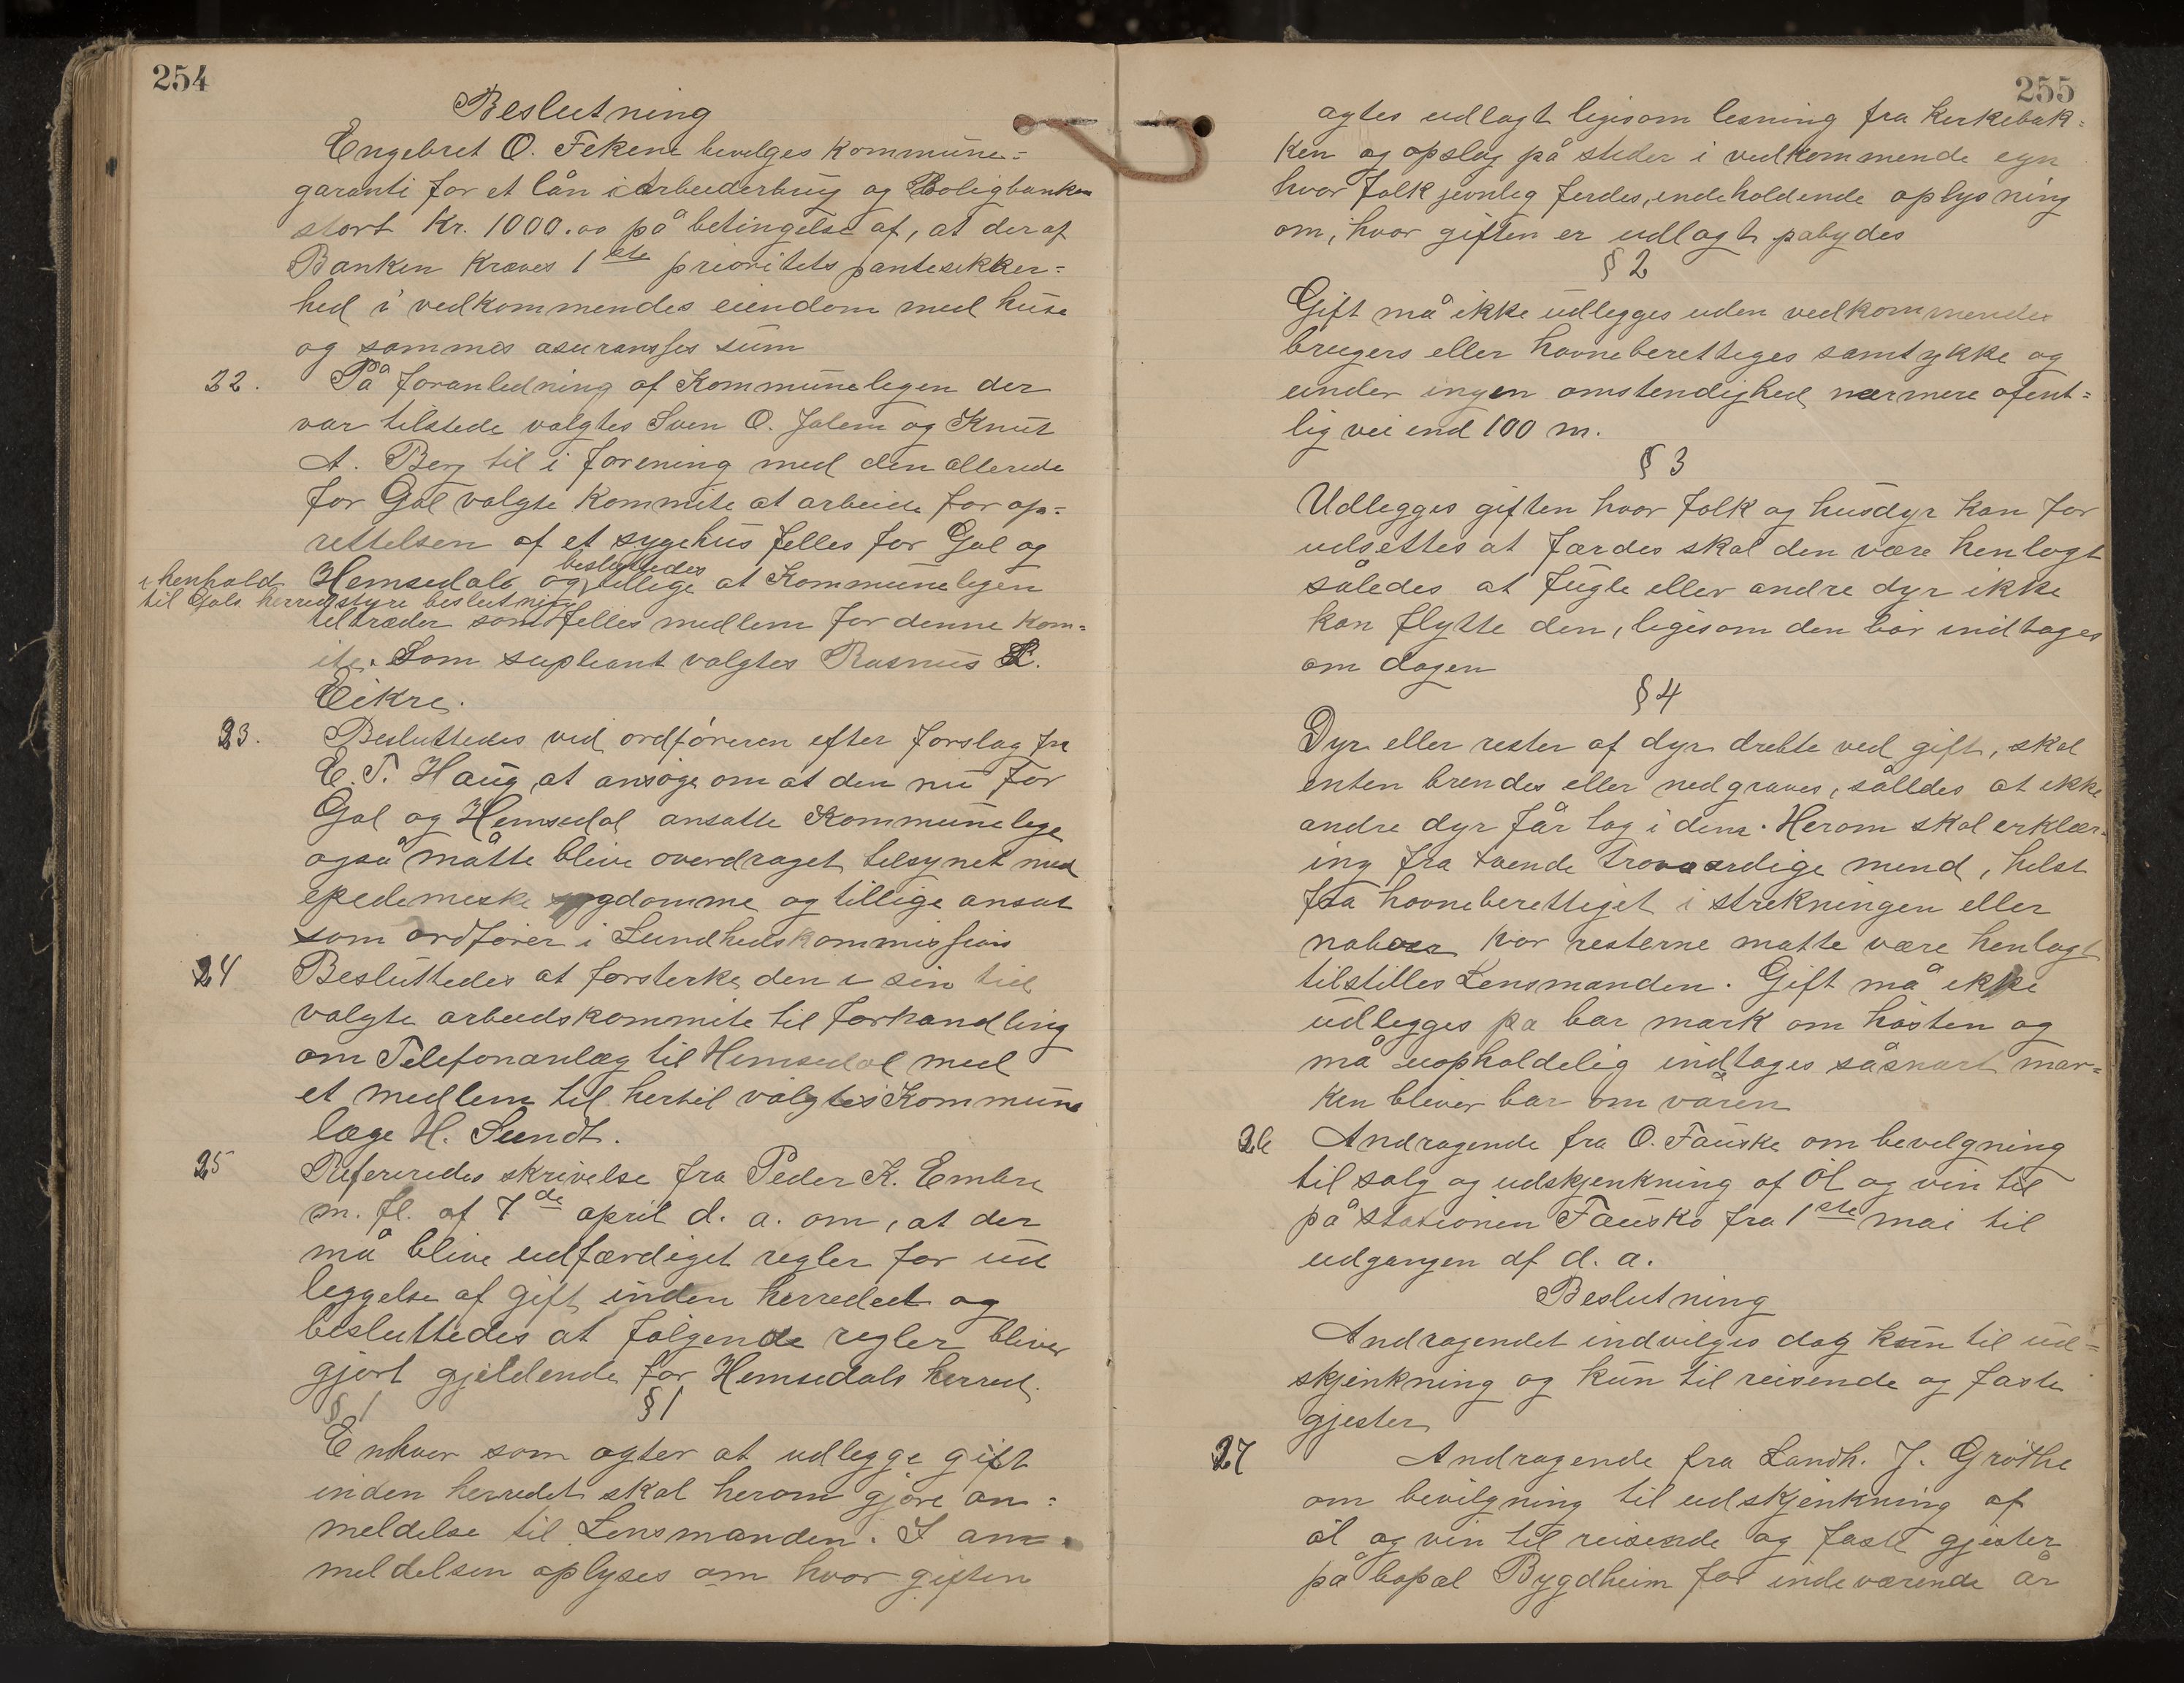 254
Beslutning
Engebret O. Fekene bevilges kommune=
garanti for et lån i Arbeiderbrug og Boligbanken
stort Kr. 1000.00 på betingelse af, at deraf
Banken kræves 1ste prioritets pantesikker=
hed i vedkommendes eiendom med huse
og sammes asuransses sum
22. På foranledning af Kommunelegen der
var tilstede valgtes Sven O. Jalem og Knut
A. Berg til i forening med den allerede
for Gol valgte kommite at arbeide for op=
rettelsen af et sygehus felles for Gol og
i henhold til Gols herredstyre beslutning
Hemsedals og besluttedes tillige at Kommunelegen
tiltræder som felles medlem for denne kom=
ite. Som supleant valgtes Rasmus L.
Eikre.
23. Besluttedes ved ordføreren efter forslag fra
E. T. Haug at ansøge om at den nu for
Gol og Hemsedal ansatte Kommunelege
også måtte blive overdraget tilsynet med
epedemiske sygdomme og tillige ansat
som ordfører i Sundhedskommission
24 Besluttedes at forsterke den i sin tid
valgte arbeidskommite til forhandling
om Telefonanlæg til Hemsedal med
et medlem til hertil valgtes Kommune
læge H. Sundt.
25 Refereredes skrivelse fra Peder K. Embre
m. fl. af 7de april d. a. om, at der
må blive udfærdiget regler for ud
leggelse af gift inden herredet og
besluttedes at følgende regler bliver
gjort gjeldende for Hemsedals herred.
§ 1 § 1
Enhver som agter at udlegge gift
inden herredet skal herom gjøre an=
meldelse til Lensmanden. I an=
meldelsen oplyses om hvor giften
255
agtes udlagt ligesom lesning fra kerkebak=
ken og opslag på steder i vedkommende egn
hvor folk jevnlig ferdes, indeholdende oplysning
om, hvor giften er udlagt pabydes
§ 2
Gift må ikke udlegges uden vedkommende
brugers eller havneberettiges samtykke og
under ingen omstendighed nærmere ofent=
lig vei end 100 m.
§ 3
Udlegges giften hvor folk og husdyr kan for
udsettes at færdes skal den være henlagt
således at fugle eller andre dyr ikke
kan flytte den, ligesom den bør indtages
om dagen
§ 4
Dyr eller rester af dyr drebte ved gift, skal
enten brendes eller nedgraves, sålldes at ikke
andre dyr får tag i dem. Herom skal erklær=
ing fra tvende troværdige mend, helst
fra havneberettiget i strekningen eller
naboer hvor resterne matte være henlagt
tilstilles Lensmanden. Gift må ikke
udlegges pa bar mark om høsten og
må uopholdelig indtages såsnart mar=
ken bliver bar om våren
26 Andragende fra O. Fauske om bevelgning
til salg og udskjenkning af Øl og vin til
på stationen Fausko fra 1ste mai til
udgangen af d. a.
Beslutning
Andragendet indvilges dog kun til ud=
skjenkning og kun til reisende og faste
gjester
27 Andragende fra Landh. J. Grøthe
om bevilgning til udskjenkning af
øl og vin til reisende og faste gjester
på bopæl Bygdheim for indeværende år